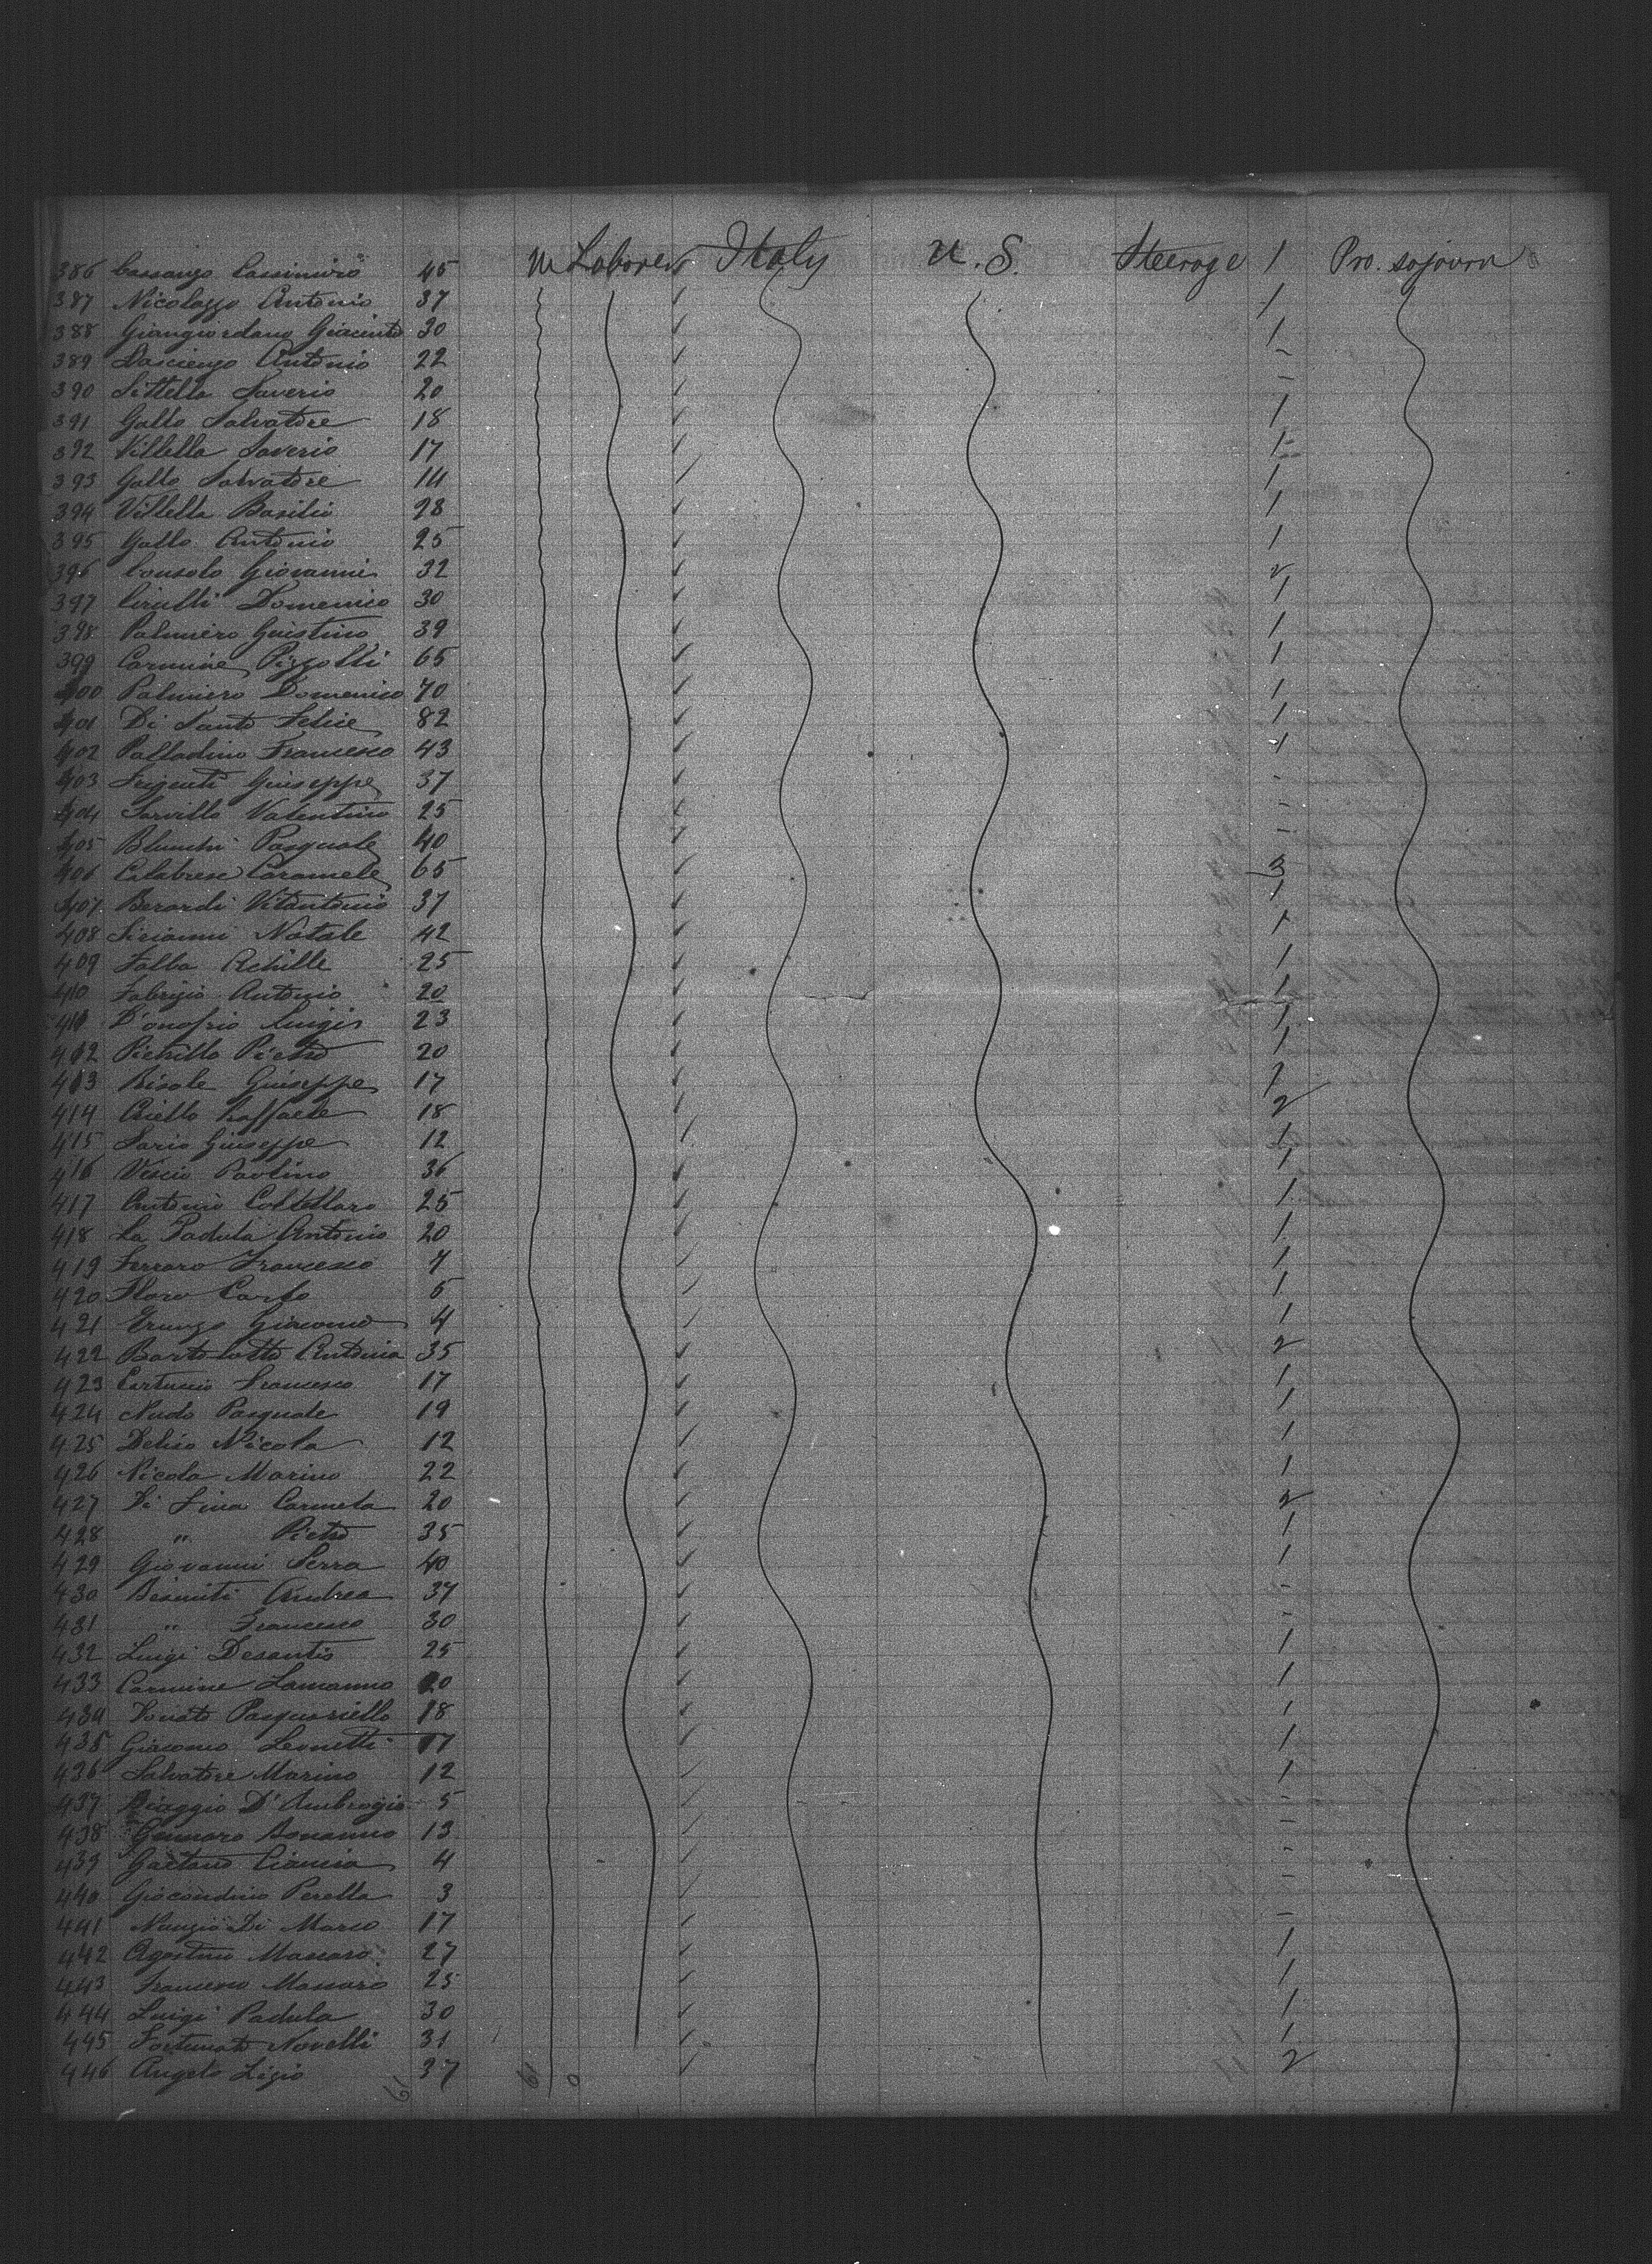 386 Cassanzo Cassimiro 45 M Laborer Italy U. S. Steerage 1 Pro. sojourn
387 Nicolazzo Antonio 37 1
388 Giangiordano Giacinto 30 1
389 Antonio 22 -
390 Sittella Saverio 20 -
391 Gallo Salvatore 18 1
392 Villella Saverio 17 1
393 Gallo Salvatore 14 1
394 Villella Basilio 28 1
395 Gallo Antonio 25 1
396 Consolo Giovanni 32 2
397 Cirulli Domenico 30 1
398 Palmiero Guistino 39 1
399 Carmine Pizzolli 65 1
400 Palmiero Domenico 70 1
401 Di Santo Felice 82 1
402 Palladino Francesco 43 1
403 Frigenti Giuseppe 37 -
404 Sarvillo Valentino 25 -
405 Pasquale 40 -
406 Calabrese Caramele 65 3
407 Berardi Vitantonio 37 1
408 Sirianni Natale 42 1
409 Falba Achille 25 1
410 Fabrizio Antonio 20 1
411 D'onofrio Luigi 23 1
412 Pietrillo Pietro 20 1
413 Bisole Giuseppe 17 1
414 Aiello Raffaele 18 2
415 Sario Giuseppe 12 1
416 Vescio Paolino 36 1
417 Antonio Coltellaro 25 1
418 La Padula Antonio 20 1
419 Ferraro Francesco 7 1
420 Floro Carlo 5 1
421 Trunzo Giacomo 4 1
422 Bartolotto Antonia 35 2
423 Cartuccio Francesco 17 1
424 Nudo Pasquale 19 1
425 Delisio Nicola 12 1
426 Nicola Marino 22 1
427 Di Lina Carmela 20 2
428 " Pietro 35 1
429 Giovanni Serra 40 1
430 Besmiti Andrea 37 -
431 " Francesco 30 -
432 Luigi Desantis 25 1
433 Carmine Lamanno 20 1
434 Donato Pasquariello 18 1
435 Giacomo Leonetti 17 1
436 Salvatore Marino 12 1
437 Biaggio D'Ambrogio 5 -
438 Gennaro Bonanno 13 -
439 Gaetano Ciancia 4 -
440 Giocondino Perella 3 -
441 Nunzio Di Marco 17 -
442 Agostino Massaro 27 1
443 Francesco Massaro 25 1
444 Luigi Padula 30 1
445 Fortunato Novelli 31 1
446 Angelo Ligio 37 2
61 61 0